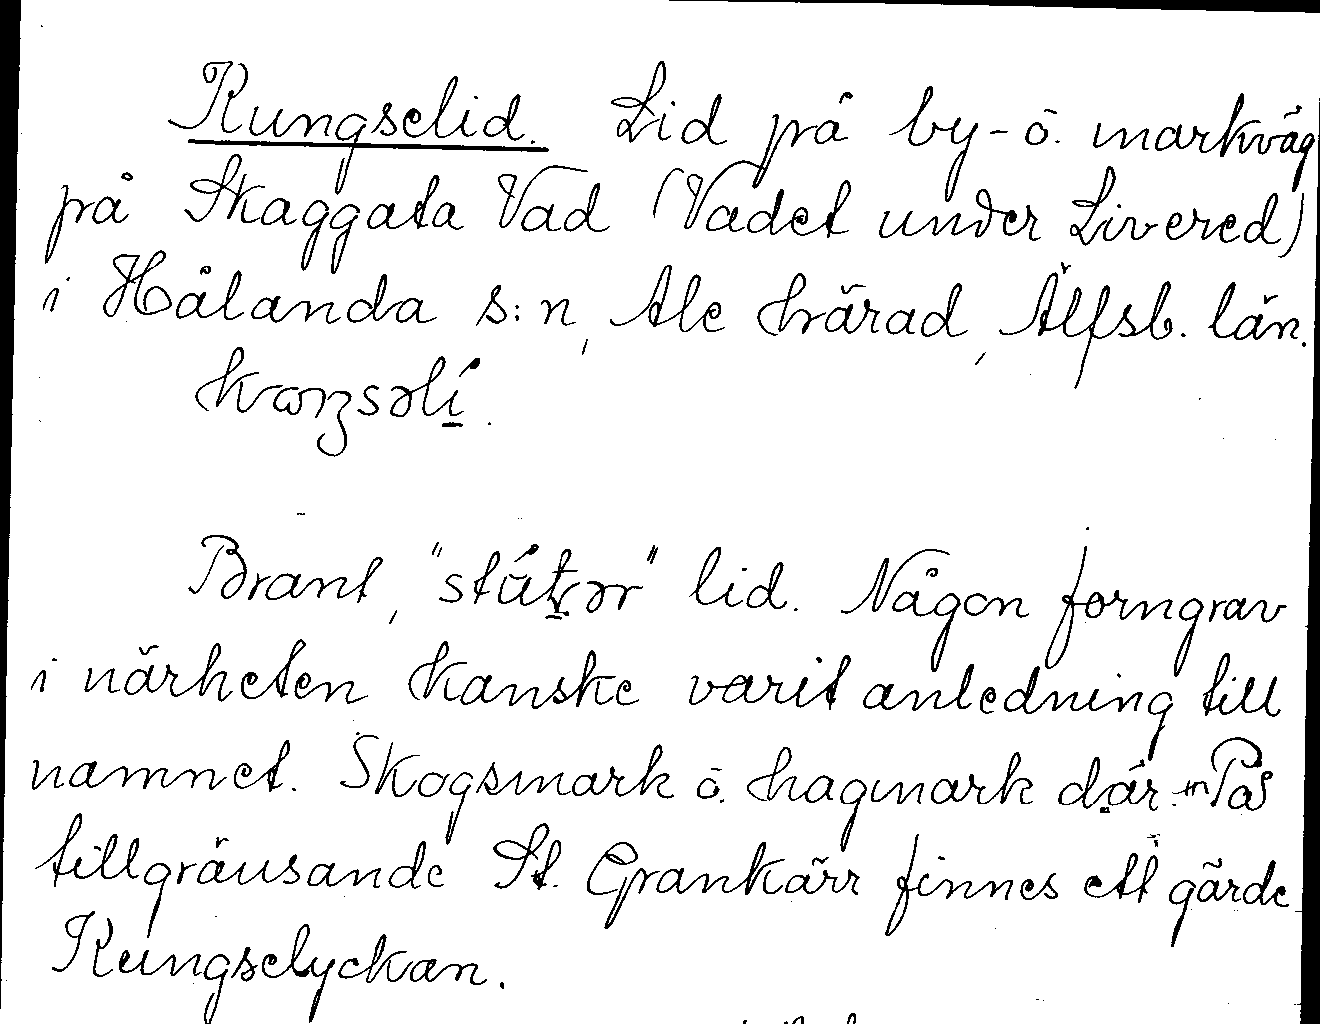 Kungselid. Lid på by- o. markväg
på Skaggata Vad (Vadet under Livered)
i Hålanda s:n, Ale härad, Älfsb. län.
Brant, "stú lid. Någon forngrav
i närheten kanske varit anledning till
namnet. Skogsmark o. hagmark där. På
tillgränsande St. Grankärr finnes ett gärde
Kungselyckan.